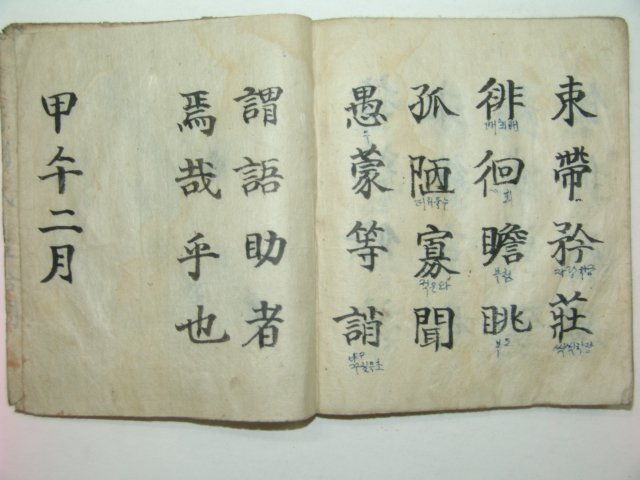 束帶矜莊
徘徊瞻眺
孤陋寡聞
愚蒙等誚
謂語助者
焉哉乎也
甲午二月